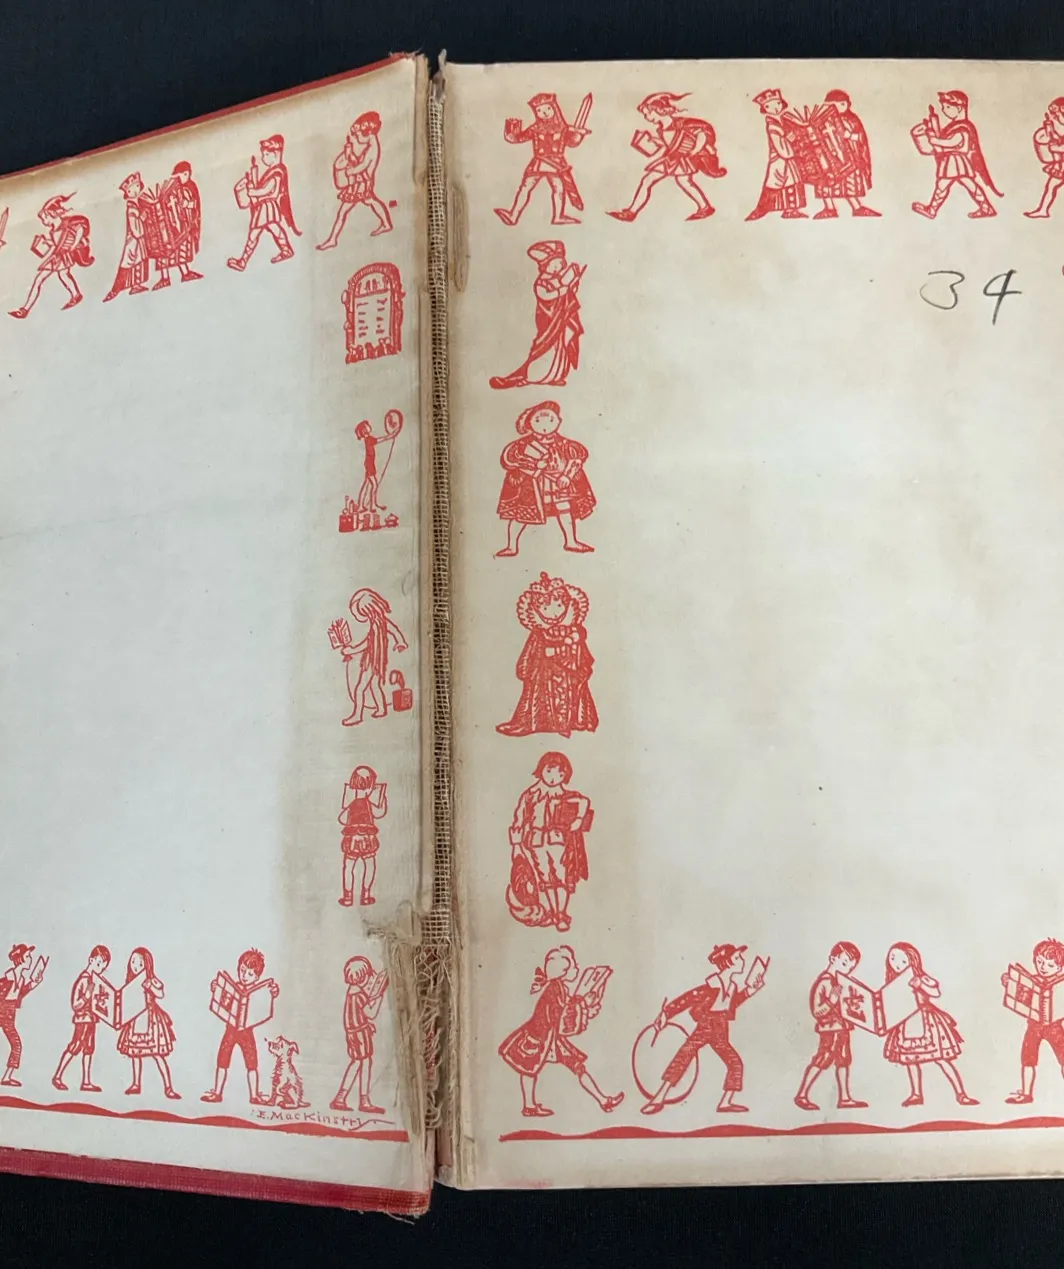 E. MacKinstry
34